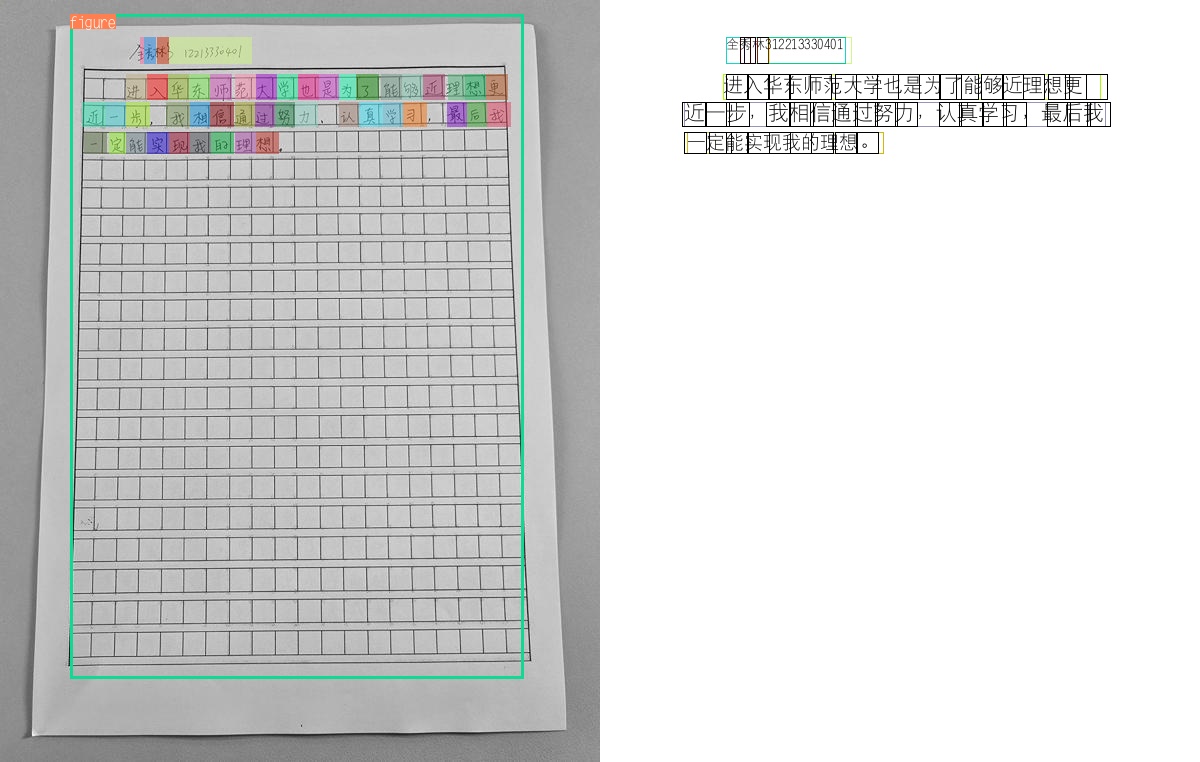 figure
全秀林312213330401
进入华东师范大学也是为了能够近理想更
近一步，我相信通过努力，认真学习，最后我
一定能实现我的理想。
全秀林312213330401
进入华东师范大学也是为了能够近理想更
近一步，我相信通过努力，认真学习，最后我
一定能实现我的理想。